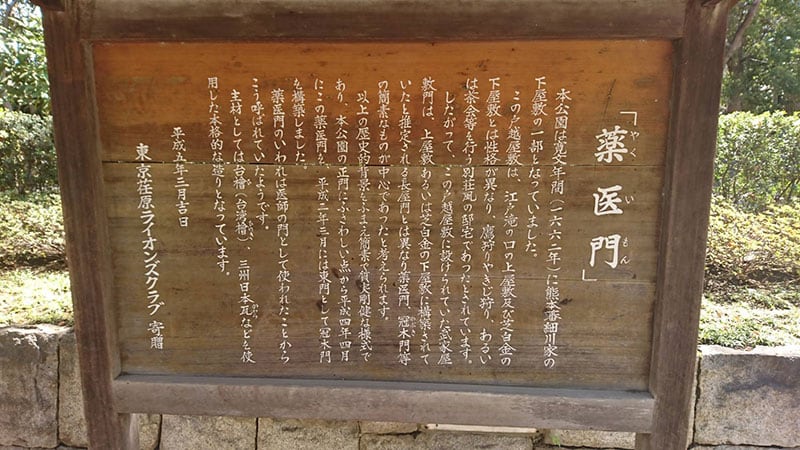 「薬医門」
やく い もん
本公園は寛文年間(一六六二年)に熊本藩細川家の
下屋敷の一部となっていました。
この戸越屋敷は、江戸滝の口の上屋敷及び芝白金の
下屋敷とは性格が異なり、鷹狩りやきじ狩り、あるい
は茶会等を行う別荘風の邸宅であったとされています。
したがって、この戸越屋敷に設けられていた武家屋
敷門は、上屋敷あるいは芝白金の下屋敷に構築されて
いたと推定される長屋門とは異なり薬医門、冠木門等
の簡素なものが中心であったと考えられます。
以上の歴史的背景をふまえ簡素で質実剛健な様式で
あり、本公園の正門にふさわしい点から平成四年四月
にこの薬医門を、平成二年三月には東門として冠木門
を構築しました。
薬医門のいわれは医師の門として使われたことから
こう呼ばれていたようです。
主材としては台檜(台湾檜)、三州日本瓦などを使
用した本格的な造りとなっています。
平成五年三月吉日
東京荏原ライオンズクラブ 寄贈